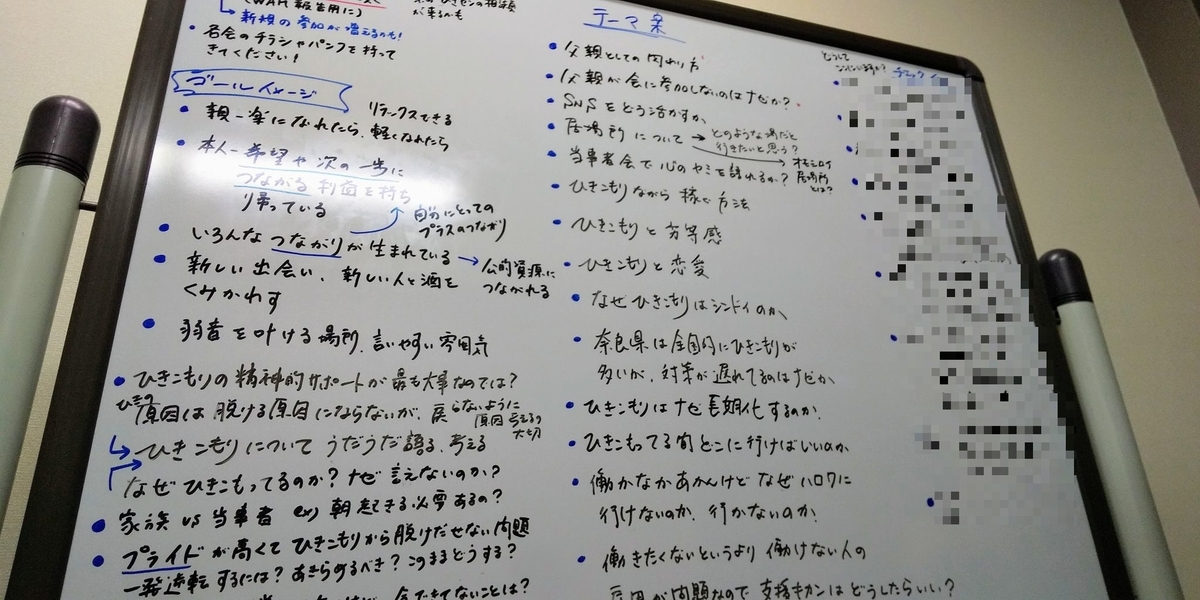 (WAM報告用に)
↳新規の参加が増えるのも!
が来るべも
・各会のチラシやパンフを持って
きてください!
ゴールイメージ
リラックスできる
・親-楽になれたら、軽くなれたら
・本人-希望や次の一歩に
つながる利直を持ち
り帰っている
自分にとっての
プラスのつながり
・いろんなつながりが生まれている
→公的資源に
つながれる
・新しい出会い、新しい人と酒を
くみかわす
・弱音を叶ける場所、言いやすい雰囲気
・ひきこもりの精神的サポートが最も大事なのでは?
ひきの
原因は脱ける原因にならないが、戻らないように
原因考えるの
大切
↳ひきこもりについてうだうだ語る、考える
なぜひきこもってるのか?ナゼ言えないのか?
・家族vs当事者 ex)朝起きる必要あるの?
・プライドが高くてひきこもりから脱けだせない問題
一発逆転するには?あきらめるべき?このままどうする?
テーマ案
・父親としての関わり方
・父親が会に参加しないのはナゼか?
・SNSをどう活かすか
・居場所について→どのような場だと
行きたいと思う?
オモシロイ
居場所
とは?
・当事者会で心のヤミを語れるか?
・ひきこもりながら稼ぐ方法
・ひきこもりと劣等感
・ひきこもりと恋愛
・なぜひきこもりはシンドイのか
・奈良県は全国的にひきこもりが
多いが、対策が遅れてるのはナゼか
・ひきこもりはナゼ長期化するのか、
・ひきこもってる前どこに行けばいいのか
・働かなあかんけどなぜハロワに
行けないのか、行かないのか、
・働きたくないというより働けない人の
原因が問題なので支援キカンはどうしたらいい?
どうして
チェックイン